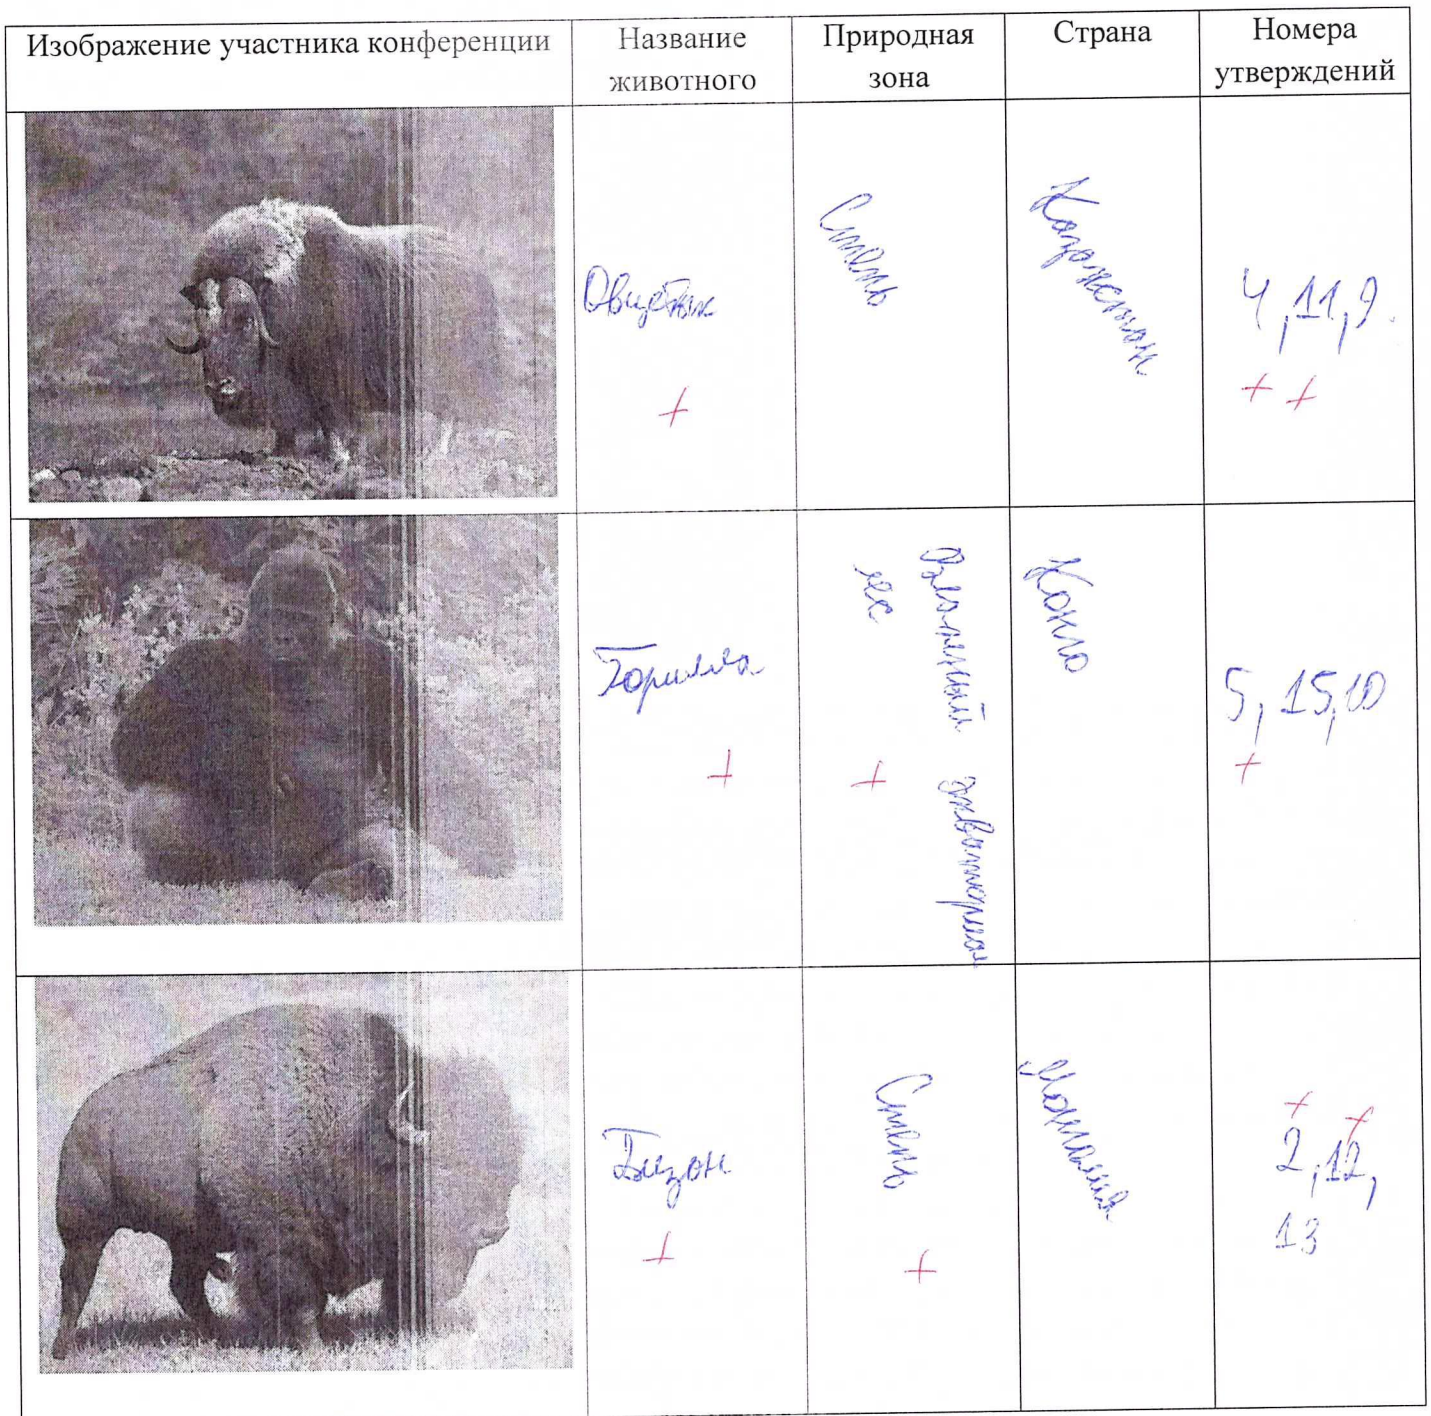 Изображение участника конференции
Название
животного
Природная
зона
Страна
Номера
утверждений
Овцебык
+
Степь
Казахстан
4, 11, 9.
+ +
Горилла
+
Влажный экваториал
лес
+
Конго
5, 15, 10
+
Бизон
+
Степь
+
Монголия
+ +
2, 12,
13